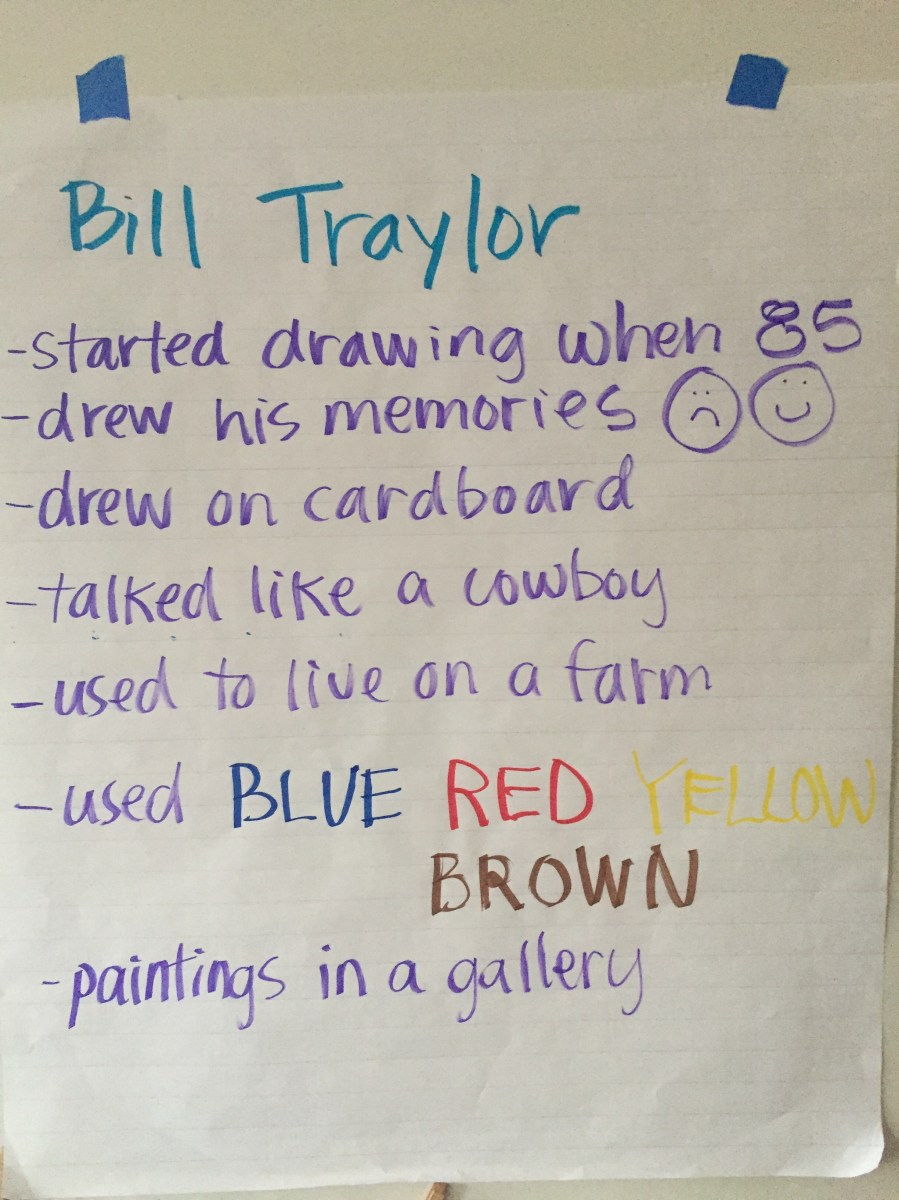 Bill Traylor
-started drawing when 85
-drew his memories
-drew on cardboard
-talked like a cowboy
-used to live on a farm
-used BLUE RED YELLOW
BROWN
-paintings in a gallery